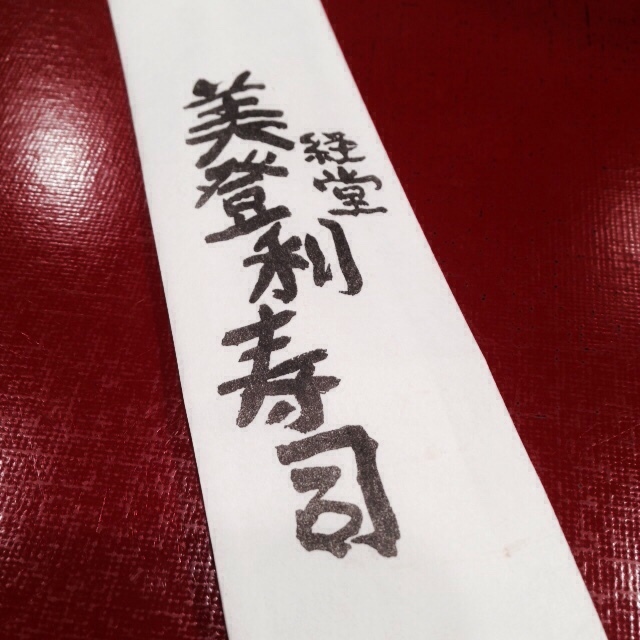 経堂
美登利寿司